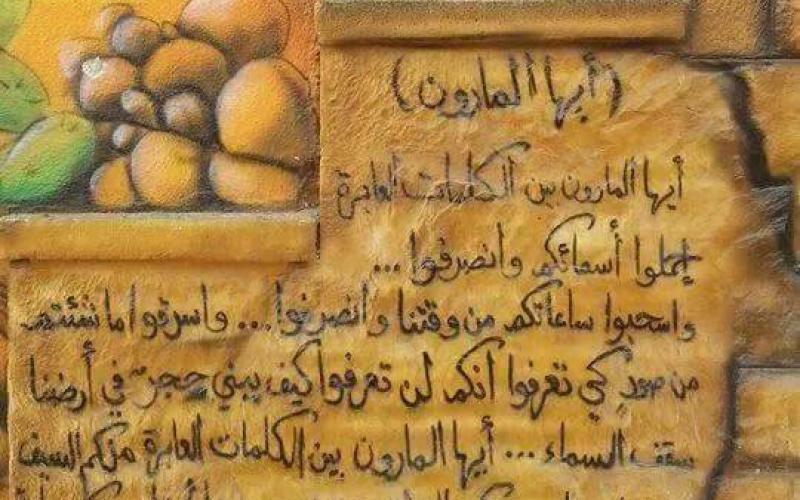 (أيها المارون)
أيها المارون بين الكلمات العابرة
إحملوا أسمائكم وانصرفوا ...
واسحبوا ساعاتكم من وقتنا وانصرفوا ... واسرقوا ما شئتم
من صورٍ كي تعرفوا أنكم لن تعرفوا كيف يبني حجرٌ في أرضنا
سقف السماء ... أيها المارون بين الكلمات العابرة منكم السيف